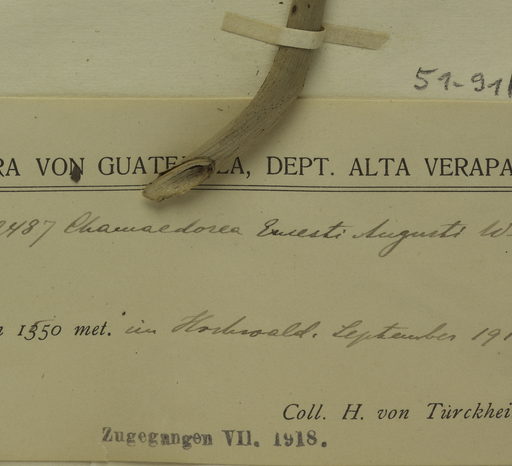 51-91
RA VON GUATEMALA, DEPT. ALTA VERAPA
2487 Chamaedorea Ernesti Augusti W
n 1350 met. im Hochwald. September 191
Coll. H. von Türckhei
Zugegangen VII. 1918.